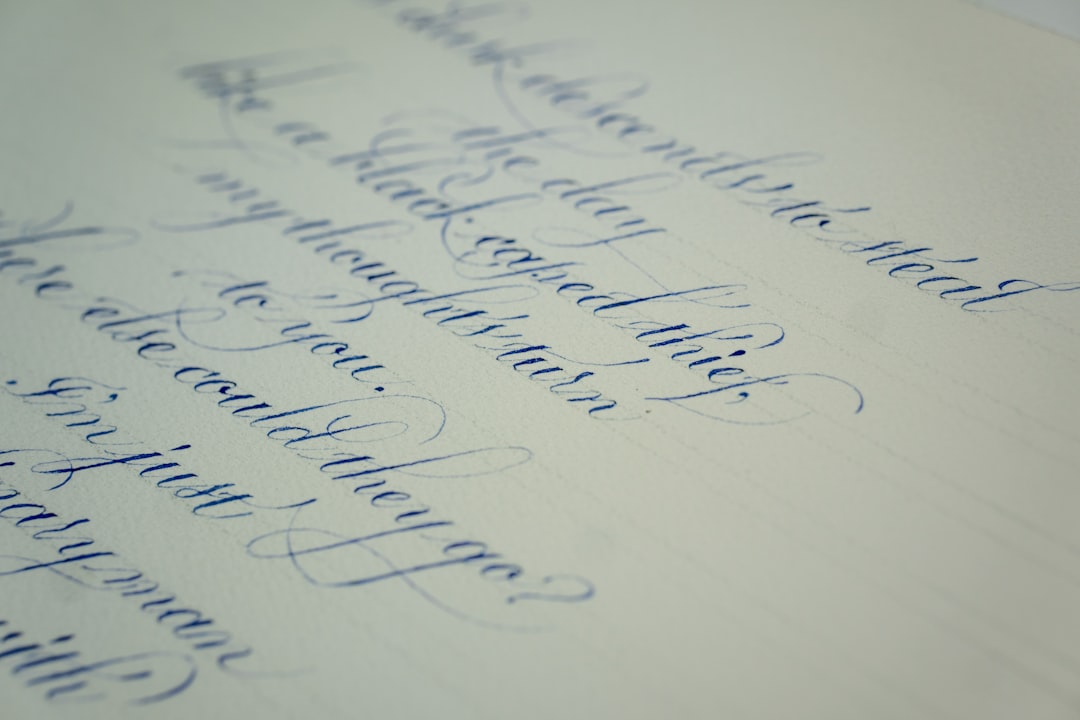 descends to steal
the day
like a black caped thief,
my thoughts turn
to you.
else could they go?
I'm just
man
with